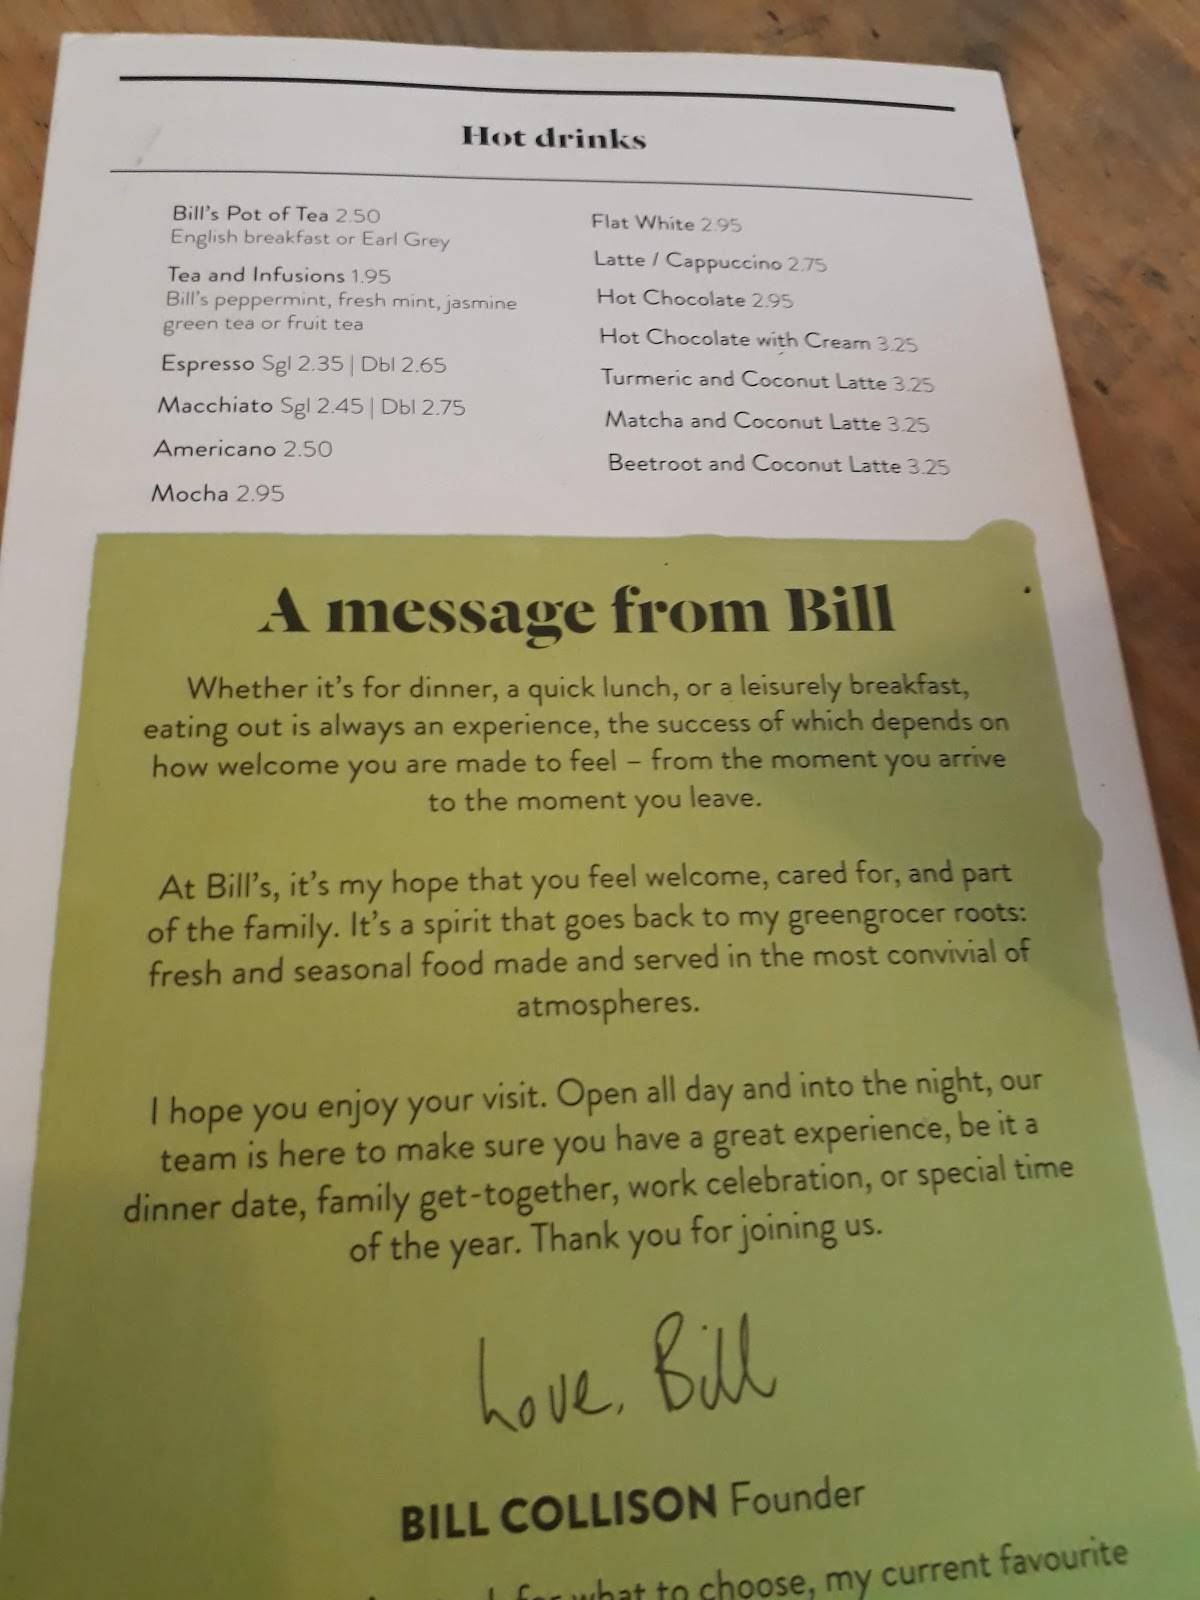 Hot drinks
Bill's Pot of Tea 2.50
English breakfast or Earl Grey
Tea and Infusions 1.95
Bill's peppermint, fresh mint, jasmine
green tea or fruit tea
Espresso Sgl 2.35 | Dbl 2.65
Macchiato Sgl 2.45 | Dbl 2.75
Americano 2.50
Mocha 2.95
Flat White 2.95
Latte / Cappuccino 2.75
Hot Chocolate 2.95
Hot Chocolate with Cream 3.25
Turmeric and Coconut Latte 3.25
Matcha and Coconut Latte 3.25
Beetroot and Coconut Latte 3.25
A message from Bill
Whether it's for dinner, a quick lunch, or a leisurely breakfast,
eating out is always an experience, the success of which depends on
how welcome you are made to feel – from the moment you arrive
to the moment you leave.
At Bill's, it's my hope that you feel welcome, cared for, and part
of the family. It's a spirit that goes back to my greengrocer roots:
fresh and seasonal food made and served in the most convivial of
atmospheres.
I hope you enjoy your visit. Open all day and into the night, our
team is here to make sure you have a great experience, be it a
dinner date, family get-together, work celebration, or special time
of the year. Thank you for joining us.
Love, Bill
BILL COLLISON Founder
for what to choose, my current favourite